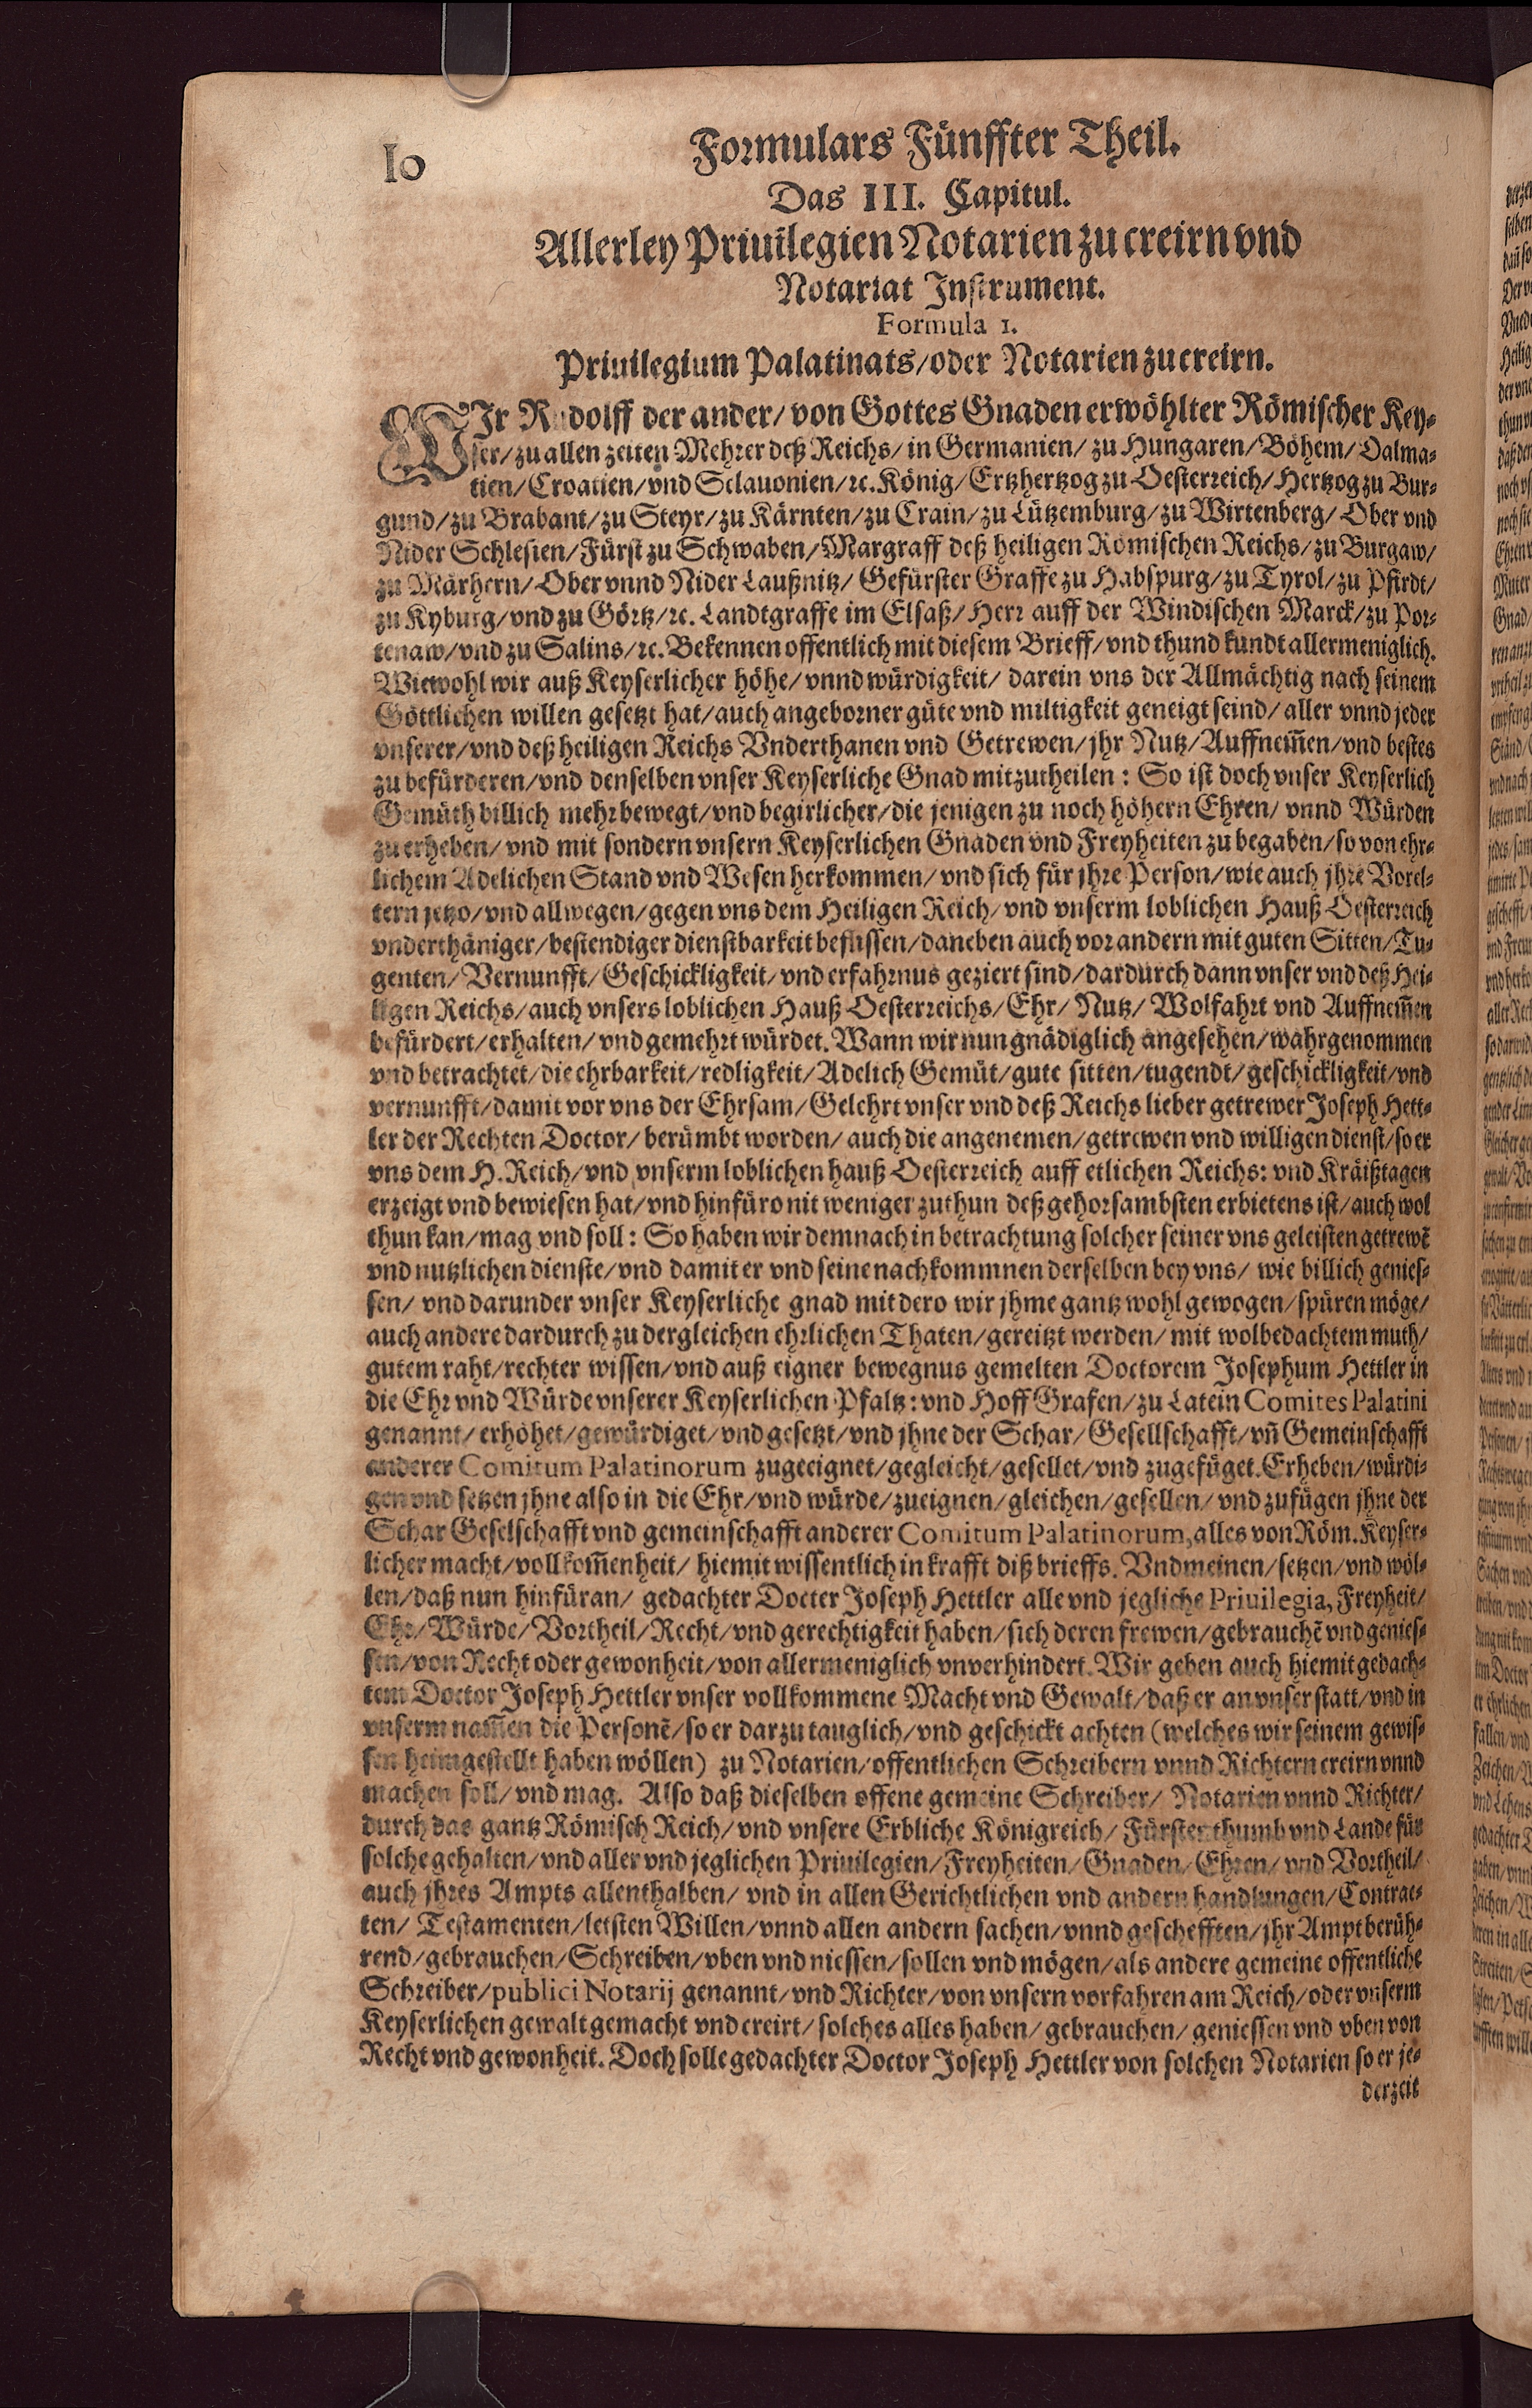 10
Formulars Fünffter Theil.
Das III. Capitul.
Allerley Priuilegien Notarien zu creirn vnd
Notariat Instrument.
Formula 1.
Priuilegium Palatinats/oder Notarien zu creirn.
WIr Rudolff der ander/ von Gottes Gnaden erwöhlter Römischer Key-
ser/zu allen zeiten Mehrer deß Reichs/ in Germanien/ zu Hungaren/Böhem/Dalma-
tien/Croatien/vnd Sclauonien/ꝛc. König/Ertzhertzog zu Oesterreich/Hertzog zu Bur-
gund/zu Brabant/zu Steyr/zu Kärnten/zu Crain/zu Lützemburg/zu Wirtenberg/Ober vnd
Nider Schlesien/Fürst zu Schwaben/Margraff deß heiligen Römischen Reichs/zu Burgaw/
zu Märhern/Ober vnnd Nider Laußnitz/ Gefürster Graffe zu Habspurg/zu Tyrol/zu Pfirdt/
zu Kyburg/vnd zu Görtz/ꝛc. Landtgraffe im Elsaß/Herr auff der Windischen Marck/zu Por-
tenaw/vnd zu Salins/ꝛc. Bekennen offentlich mit diesem Brieff/vnd thund kundt allermeniglich.
Wiewohl wir auß Keyserlicher höhe/vnnd würdigkeit/ darein vns der Allmächtig nach seinem
Göttlichen willen gesetzt hat/auch angeborner güte vnd miltigkeit geneigt seind/aller vnnd jeder
vnserer/vnd deß heiligen Reichs Vnderthanen vnd Getrewen/jhr Nutz/Auffnem̄en/vnd bestes
zu befürderen/vnd denselben vnser Keyserliche Gnad mitzutheilen: So ist doch vnser Keyserlich
Gemüth billich mehr bewegt/vnd begirlicher/die jenigen zu noch höhern Ehren/ vnnd Würden
zu erheben/vnd mit sondern vnsern Keyserlichen Gnaden vnd Freyheiten zu begaben/so von ehr-
lichem Adelichen Stand vnd Wesen herkommen/vnd sich für jhre Person/wie auch jhre Vorel-
tern jetzo/vnd allwegen/gegen vns dem Heiligen Reich/vnd vnserm loblichen Hauß Oesterreich
vnderthäniger/bestendiger dienstbarkeit beflissen/daneben auch vor andern mit guten Sitten/Tu-
genten/Vernunfft/Geschickligkeit/vnd erfahrnus geziert sind/dardurch dann vnser vnd deß Hei-
ligen Reichs/auch vnsers loblichen Hauß Oesterreichs/Ehr/Nutz/Wolfahrt vnd Auffnem̄en
befürdert/erhalten/vnd gemehrt würdet. Wann wir nun gnädiglich angesehen/wahrgenommen
vnd betrachtet/die ehrbarkeit/redligkeit/Adelich Gemüt/gute sitten/tugendt/geschickligkeit/vnd
vernunfft/damit vor vns der Ehrsam/Gelehrt vnser vnd deß Reichs lieber getrewer Joseph Hett-
ler der Rechten Doctor/berümbt worden/auch die angenemen/getrewen vnd willigen dienst/so er
vns dem H. Reich/vnd vnserm loblichen hauß Oesterreich auff etlichen Reichs: vnd Kräißtagen
erzeigt vnd bewiesen hat/vnd hinfüro nit weniger zuthun deß gehorsambsten erbietens ist/auch wol
thun kan/mag vnd soll: So haben wir demnach in betrachtung solcher seiner vns geleisten getrewē
vnd nutzlichen dienste/vnd damit er vnd seine nachkommnen derselben bey vns/ wie billich genies-
sen/ vnd darunder vnser Keyserliche gnad mit dero wir jhme gantz wohl gewogen/spüren möge/
auch andere dardurch zu dergleichen ehrlichen Thaten/gereitzt werden/ mit wolbedachtem muth/
gutem raht/rechter wissen/vnd auß eigner bewegnus gemelten Doctorem Josephum Hettler in
die Ehr vnd Würde vnserer Keyserlichen Pfaltz: vnd Hoff Grafen/zu Latein Comites Palatini
genannt/erhöhet/gewürdiget/vnd gesetzt/vnd jhne der Schar/Gesellschafft/vn̄ Gemeinschafft
anderer Comitum Palatinorum zugeeignet/gegleicht/gesellet/vnd zugefüget. Erheben/würdi-
gen vnd setzen jhne also in die Ehr/vnd würde/zueignen/gleichen/gesellen/vnd zufügen jhne der
Schar Geselschafft vnd gemeinschafft anderer Comitum Palatinorum, alles von Röm. Keyser-
licher macht/vollkom̄enheit/ hiemit wissentlich in krafft diß brieffs. Vnd meinen/setzen/vnd wöl-
len/daß nun hinfüran/ gedachter Docter Joseph Hettler alle vnd jegliche Priuilegia, Freyheit/
Ehr/Würde/Vortheil/Recht/vnd gerechtigkeit haben/sich deren frewen/gebrauchē vnd genies-
sen/von Recht oder gewonheit/von allermeniglich vnverhindert. Wir geben auch hiemit gedach-
tem Doctor Joseph Hettler vnser vollkommene Macht vnd Gewalt/daß er an vnser statt/vnd in
vnserm nam̄en die Personē/so er darzu tauglich/vnd geschickt achten (welches wir seinem gewis-
sen heimgestellt haben wöllen) zu Notarien/offentlichen Schreibern vnnd Richtern creirn vnnd
machen soll/vnd mag. Also daß dieselben offene gemeine Schreiber/ Notarien vnnd Richter/
durch das gantz Römisch Reich/vnd vnsere Erbliche Königreich/Fürstenthumb vnd Lande für
solche gehalten/vnd aller vnd jeglichen Priuilegien/Freyheiten/Gnaden/Ehren/vnd Vortheil/
auch jhres Ampts allenthalben/ vnd in allen Gerichtlichen vnd andern handlungen/Contrac-
ten/ Testamenten/letsten Willen/vnnd allen andern sachen/vnnd geschefften/jhr Ampt berüh-
rend/gebrauchen/Schreiben/vben vnd niessen/sollen vnd mögen/als andere gemeine offentliche
Schreiber/publici Notarij genannt/vnd Richter/von vnsern vorfahren am Reich/oder vnserm
Keyserlichen gewalt gemacht vnd creirt/solches alles haben/gebrauchen/geniessen vnd vben von
Recht vnd gewonheit. Doch solle gedachter Doctor Joseph Hettler von solchen Notarien so er je-
derzeit